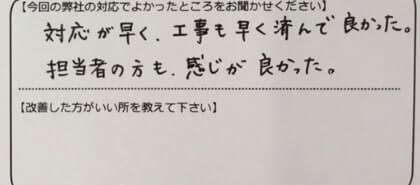 【今回の弊社の対応でよかったところをお聞かせください】
対応が早く、工事も早く済んで良かった。
担当者の方も、感じが良かった。
【改善した方がいい所を教えて下さい】